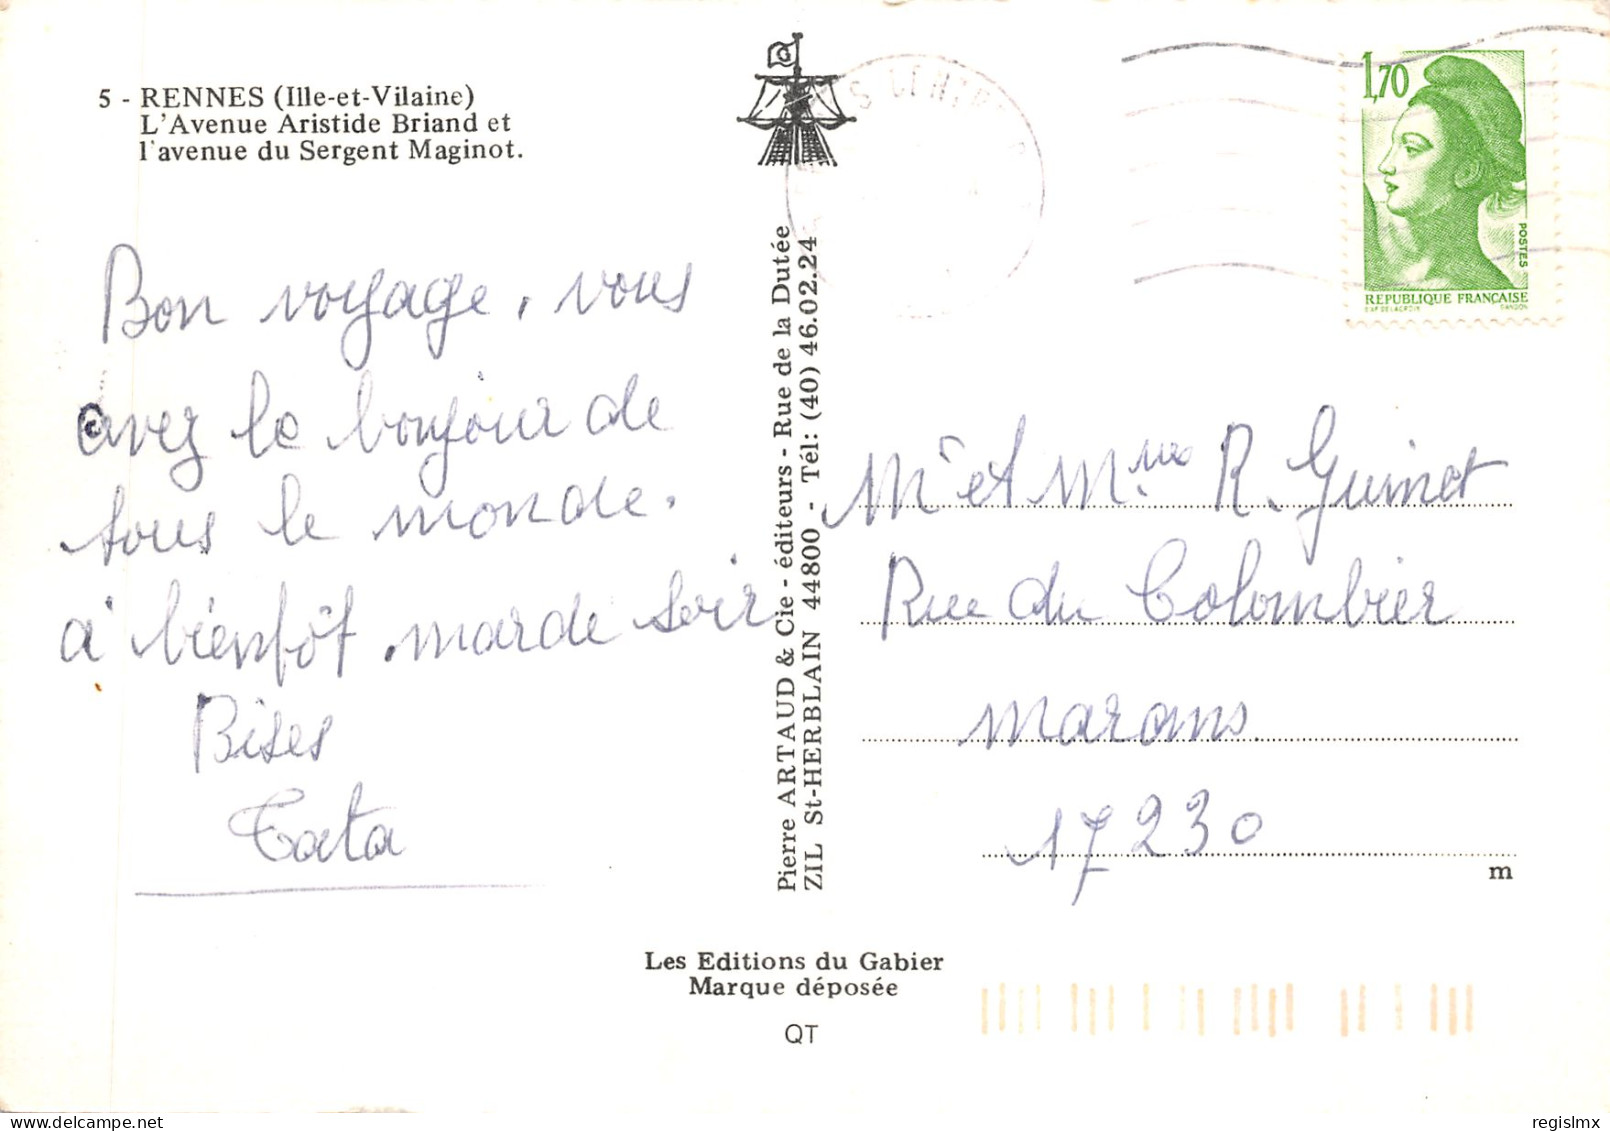 5 - RENNES (Ille-et-Vilaine)
L'Avenue Aristide Briand et
l'avenue du Sergent Maginot.
Bon voyage, vous
avez le bonjour de
tous le monde.
a bientôt marde soir
Bises
Tata
Pierre ARTAUD & Cie - éditeurs - Rue de la Dutée
ZIL St-HERBLAIN 44800 - Tél: (40) 46.02.24
1,70
POSTES
REPUBLIQUE FRANÇAISE
D'AP. DELACROIX GANDON
Mr et Mme R. Guinet
Rue du Colombier
Marans
17230
m
Les Editions du Gabier
Marque déposée
QT
regislmx